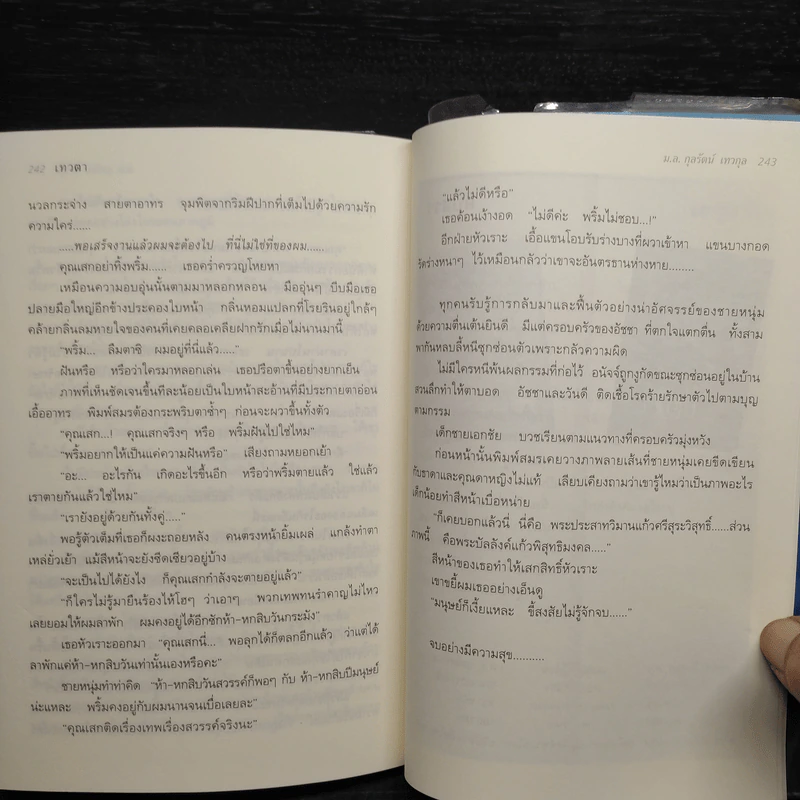 242 เทวตา
นวลกระจ่าง สายตาอาทร จุมพิตจากริมฝีปากที่เต็มไปด้วยความรัก
ความใคร่......
.....พอเสร็จงานแล้วผมจะต้องไป ที่นี่ไม่ใช่ที่ของผม......
คุณเสกอย่าทิ้งพริ้ม...... เธอคร่ำครวญโหยหา
เหมือนความอบอุ่นนั้นตามมาหลอกหลอน มืออุ่นๆ บีบมือเธอ
ปลายมือใหญ่อีกข้างประคองใบหน้า กลิ่นหอมแปลกที่โรยรินอยู่ใกล้ๆ
คล้ายกลิ่นลมหายใจของคนที่เคยคลอเคลียฝากรักเมื่อไม่นานมานี้
“พริ้ม... ลืมตาซิ ผมอยู่ที่นี่แล้ว.....”
ฝันหรือ หรือว่าใครมาหลอกเล่น เธอปรือตาขึ้นอย่างยากเย็น
ภาพที่เห็นชัดเจนขึ้นทีละน้อยเป็นใบหน้าสะอ้านที่มีประกายตาอ่อน
เอื้ออาทร พิมพ์สมรต้องกระพริบตาซ้ำๆ ก่อนจะผวาขึ้นทั้งตัว
“คุณเสก...! คุณเสกจริงๆ หรือ พริ้มฝันไปใช่ไหม”
“พริ้มอยากให้เป็นแค่ความฝันหรือ” เสียงถามหยอกเย้า
“อะ... อะไรกัน เกิดอะไรขึ้นอีก หรือว่าพริ้มตายแล้ว ใช่แล้ว
เราตายกันแล้วใช่ไหม”
“เรายังอยู่ด้วยกันทั้งคู่.....”
พอรู้ตัวเต็มที่เธอก็ผงะถอยหลัง คนตรงหน้ายิ้มเผล่ แกล้งทำตา
เหล่ยั่วเย้า แม้สีหน้าจะยังซีดเซียวอยู่บ้าง
“จะเป็นไปได้ยังไง ก็คุณเสกกำลังจะตายอยู่แล้ว”
“ก็ใครไม่รู้มายืนร้องไห้โฮๆ ว่าเอาๆ พวกเทพทนรำคาญไม่ไหว
เลยยอมให้ผมลาพัก ผมคงอยู่ได้อีกซักห้า-หกสิบวันกระมัง”
เธอหัวเราะออกมา “คุณเสกนี่... พอลุกได้ก็ตลกอีกแล้ว ว่าแต่ได้
ลาพักแค่ห้า-หกสิบวันเท่านั้นเองหรือคะ”
ชายหนุ่มทำท่าคิด “ห้า-หกสิบวันสวรรค์ก็พอๆ กับ ห้า-หกสิบปีมนุษย์
น่ะแหละ พริ้มคงอยู่กับผมนานจนเบื่อเลยละ”
“คุณเสกติดเรื่องเทพเรื่องสวรรค์จริงนะ”
ม.ล. กุลรัตน์ เทวกุล 243
“แล้วไม่ดีหรือ”
เธอค้อนเง้างอด “ไม่ดีค่ะ พริ้มไม่ชอบ...!”
อีกฝ่ายหัวเราะ เอื้อแขนโอบรับร่างบางที่ผวาเข้าหา แขนบางกอด
รัดร่างหนาๆ ไว้เหมือนกลัวว่าเขาจะอันตรธานห่างหาย........
ทุกคนรับรู้การกลับมาและฟื้นตัวอย่างน่าอัศจรรย์ของชายหนุ่ม
ด้วยความตื่นเต้นยินดี มีแต่ครอบครัวของอัชชา ที่ตกใจแตกตื่น ทั้งสาม
พากันหลบลี้หนีซุกซ่อนตัวเพราะกลัวความผิด
ไม่มีใครหนีพ้นผลกรรมที่ก่อไว้ อนัจจ์ถูกงูกัดขณะซุกซ่อนอยู่ในบ้าน
สวนลึกทำให้ตาบอด อัชชาและวันดี ติดเชื้อโรคร้ายรักษาตัวไปตามบุญ
ตามกรรม
เด็กชายเอกชัย บวชเรียนตามแนวทางที่ครอบครัวมุ่งหวัง
ก่อนหน้านั้นพิมพ์สมรเคยวางภาพลายเส้นที่ชายหนุ่มเคยขีดเขียน
กับธาดาและคุณดาหญิงไม่แท้ เลียบเคียงถามว่าเขารู้ไหมว่าเป็นภาพอะไร
เด็กน้อยทำสีหน้าเบื่อหน่าย
“ก็เคยบอกแล้วนี่ นี่คือ พระประสาทวิมานแก้วศรีสุระวิสุทธิ์......ส่วน
ภาพนี้ คือพระบัลลังค์แก้วพิสุทธิมงคล.....”
สีหน้าของเธอทำให้เสกสิทธิ์หัวเราะ
เขาขยี้ผมเธออย่างเอ็นดู
“มนุษย์ก็เงี้ยแหละ ขี้สงสัยไม่รู้จักจบ......”
จบอย่างมีความสุข..........